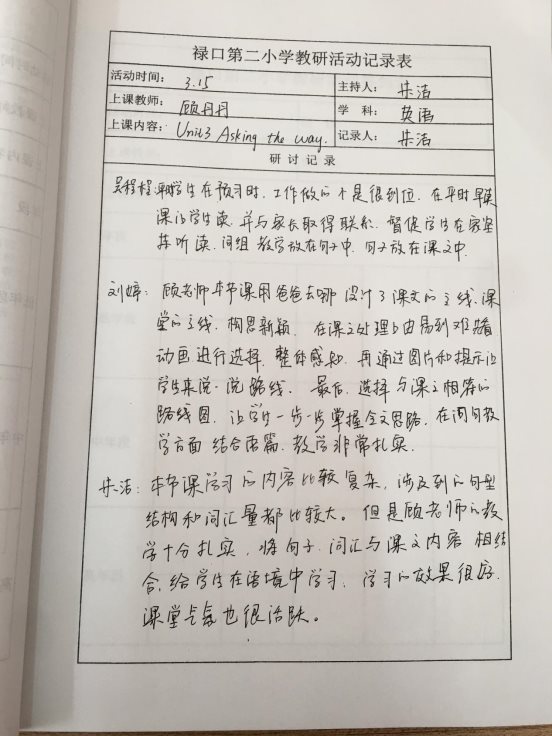 禄口第二小学教研活动记录表
活动时间： 3.15 主持人： 朱洁
上课教师： 顾丹丹 学 科： 英语
上课内容： Unit3 Asking the way. 记录人： 朱洁
研讨记录
吴程程：学生在预习时，工作做的不是很到位，在平时早读
课的学生读，并与家长取得联系，督促学生在家坚
持听读，词组教学放在句子中，句子放在课文中．
刘婷：顾老师本节课用爸爸去哪设计了课文的主线，课
堂的主线，构思新颖．在课文处理上由易到难，看
动画进行选择，整体感知，再通过图片和提示让
学生来说一说路线．最后，选择与课文相符的
路线图，让学生一步一步掌握全文思路．在词句教
学方面结合语篇，教学非常扎实．
朱洁：本节课学习的内容比较复杂，涉及到的句型
结构和词汇量都比较大。但是顾老师的教
学十分扎实，将句子、词汇与课文内容相结
合，给学生在语境中学习，学习的效果很好．
课堂气氛也很活跃。